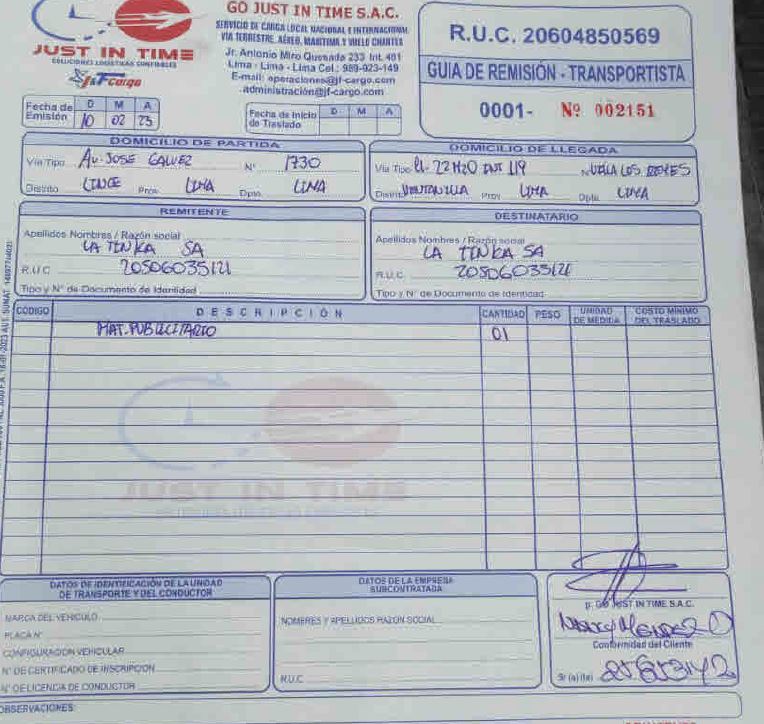 GO JUST IN TIME S.A.C.
SERVICIO DE CARGA LOCAL NACIONAL E INTERNACIONAL
VIA TERRESTRE, AÉREO, MARITIMA Y VUELO CHARTER
Jr. Antonio Miro Quesada 233 Int. 401
Lima - Lima - Lima Cel.: 989-923-149
E-mail: operaciones@jf-cargo.com
administración@jf-cargo.com
JUST IN TIME
SOLUCIONES LOGISTICAS CONFIABLES
J&F Cargo
R.U.C. 20604850569
GUIA DE REMISIÓN - TRANSPORTISTA
0001- Nº 002151
Fecha de Emisión D M A
10 02 23
Fecha de Inicio de Traslado D M A
DOMICILIO DE PARTIDA
Vía Tipo Av. JOSE GALVEZ Nº 1730
Distrito LINCE Prov. LIMA Dpto. LIMA
DOMICILIO DE LLEGADA
Vía Tipo 22 H20 INT 119 LOS REYES
Distrito VENTANILLA Prov. LIMA Dpto. LIMA
REMITENTE
Apellidos Nombres / Razón social
LA TINKA SA
R.U.C. 20506035121
Tipo y Nº de Documento de Identidad
DESTINATARIO
Apellidos Nombres / Razón social
LA TINKA SA
R.U.C. 20506035121
Tipo y Nº de Documento de Identidad
CODIGO DESCRIPCIÓN CANTIDAD PESO UNIDAD DE MEDIDA COSTO MÍNIMO DEL TRASLADO
MAT. PUBLICITARIO 01
JUST IN TIME
DATOS DE IDENTIFICACIÓN DE LA UNIDAD
DE TRANSPORTE Y DEL CONDUCTOR
MARCA DEL VEHICULO
PLACA Nº
CONFIGURACIÓN VEHICULAR
Nº DE CERTIFICADO DE INSCRIPCIÓN
Nº DE LICENCIA DE CONDUCTOR
DATOS DE LA EMPRESA
SUBCONTRATADA
NOMBRES Y APELLIDOS RAZÓN SOCIAL
R.U.C.
p. GO JUST IN TIME S.A.C.
Conformidad del Cliente
Sr (a) (ta)
OBSERVACIONES